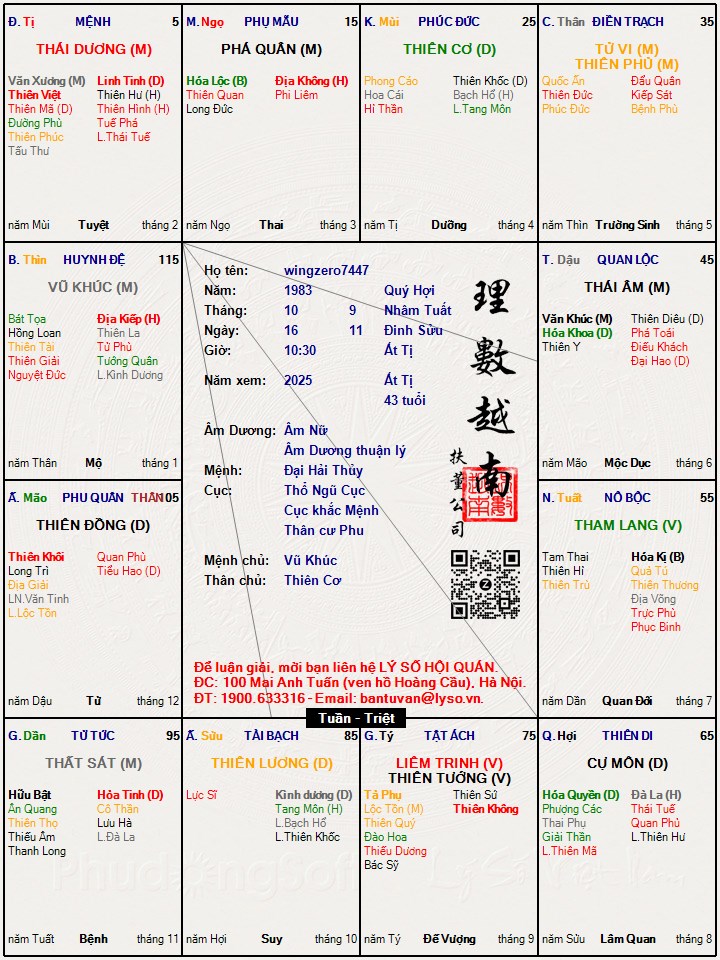 Đ. Tị MỆNH 5
THÁI DƯƠNG (M)
Văn Xương (M) Linh Tinh (D)
Thiên Việt Thiên Hư (H)
Thiên Mã (D) Thiên Hình (H)
Đường Phù Tuế Phá
Thiên Phúc L.Thái Tuế
Tấu Thư
năm Mùi Tuyệt tháng 2
M. Ngọ PHỤ MẪU 15
PHÁ QUÂN (M)
Hóa Lộc (B) Địa Không (H)
Thiên Quan Phi Liêm
Long Đức
năm Ngọ Thai tháng 3
K. Mùi PHÚC ĐỨC 25
THIÊN CƠ (D)
Phong Cáo Thiên Khốc (D)
Hoa Cái Bạch Hổ (H)
Hỉ Thần L.Tang Môn
năm Tị Dưỡng tháng 4
C. Thân ĐIỀN TRẠCH 35
TỬ VI (M)
THIÊN PHỦ (M)
Quốc Ấn Đẩu Quân
Thiên Đức Kiếp Sát
Phúc Đức Bệnh Phù
năm Thìn Trường Sinh tháng 5
B. Thìn HUYNH ĐỆ 115
VŨ KHÚC (M)
Bát Tọa Địa Kiếp (H)
Hồng Loan Thiên La
Thiên Tài Tử Phù
Thiên Giải Tướng Quân
Nguyệt Đức L.Kình Dương
năm Thân Mộ tháng 1
Họ tên: wingzero7447
Năm: 1983 Quý Hợi
Tháng: 10 9 Nhâm Tuất
Ngày: 16 11 Đinh Sửu
Giờ: 10:30 Ất Tị
Năm xem: 2025 Ất Tị
43 tuổi
Âm Dương: Âm Nữ
Âm Dương thuận lý
Mệnh: Đại Hải Thủy
Cục: Thổ Ngũ Cục
Cục khắc Mệnh
Thân cư Phu
Mệnh chủ: Vũ Khúc
Thân chủ: Thiên Cơ
理數越南
扶董公司
Để luận giải, mời bạn liên hệ LÝ SỐ HỘI QUÁN.
ĐC: 100 Mai Anh Tuấn (ven hồ Hoàng Cầu), Hà Nội.
ĐT: 1900.633316 - Email: bantuvan@lyso.vn.
Tuần - Triệt
T. Dậu QUAN LỘC 45
THÁI ÂM (M)
Văn Khúc (M) Thiên Diêu (D)
Hóa Khoa (D) Phá Toái
Thiên Y Điếu Khách
Đại Hao (D)
năm Mão Mộc Dục tháng 6
Ấ. Mão PHU QUÂN THÂN 105
THIÊN ĐỒNG (D)
Thiên Khôi Quan Phù
Long Trì Tiểu Hao (D)
Địa Giải
LN.Văn Tinh
L.Lộc Tồn
năm Dậu Tử tháng 12
N. Tuất NÔ BỘC 55
THAM LANG (V)
Tam Thai Hóa Kị (B)
Thiên Hỉ Quả Tú
Thiên Trù Thiên Thương
Địa Võng
Trực Phù
Phục Binh
năm Dần Quan Đới tháng 7
G. Dần TỬ TỨC 95
THẤT SÁT (M)
Hữu Bật Hỏa Tinh (D)
Ân Quang Cô Thần
Thiên Thọ Lưu Hà
Thiếu Âm L.Đà La
Thanh Long
năm Tuất Bệnh tháng 11
Ấ. Sửu TÀI BẠCH 85
THIÊN LƯƠNG (D)
Lực Sĩ Kình dương (D)
Tang Môn (H)
L.Bạch Hổ
L.Thiên Khốc
năm Hợi Suy tháng 10
G. Tý TẬT ÁCH 75
LIÊM TRINH (V)
THIÊN TƯỚNG (V)
Tả Phụ Thiên Sứ
Lộc Tồn (M) Thiên Không
Thiên Quý
Đào Hoa
Thiếu Dương
Bác Sỹ
năm Tý Đế Vượng tháng 9
Q. Hợi THIÊN DI 65
CỰ MÔN (D)
Hóa Quyền (D) Đà La (H)
Phượng Các Thái Tuế
Thai Phụ Quan Phủ
Giải Thần L.Thiên Hư
L.Thiên Mã
năm Sửu Lâm Quan tháng 8